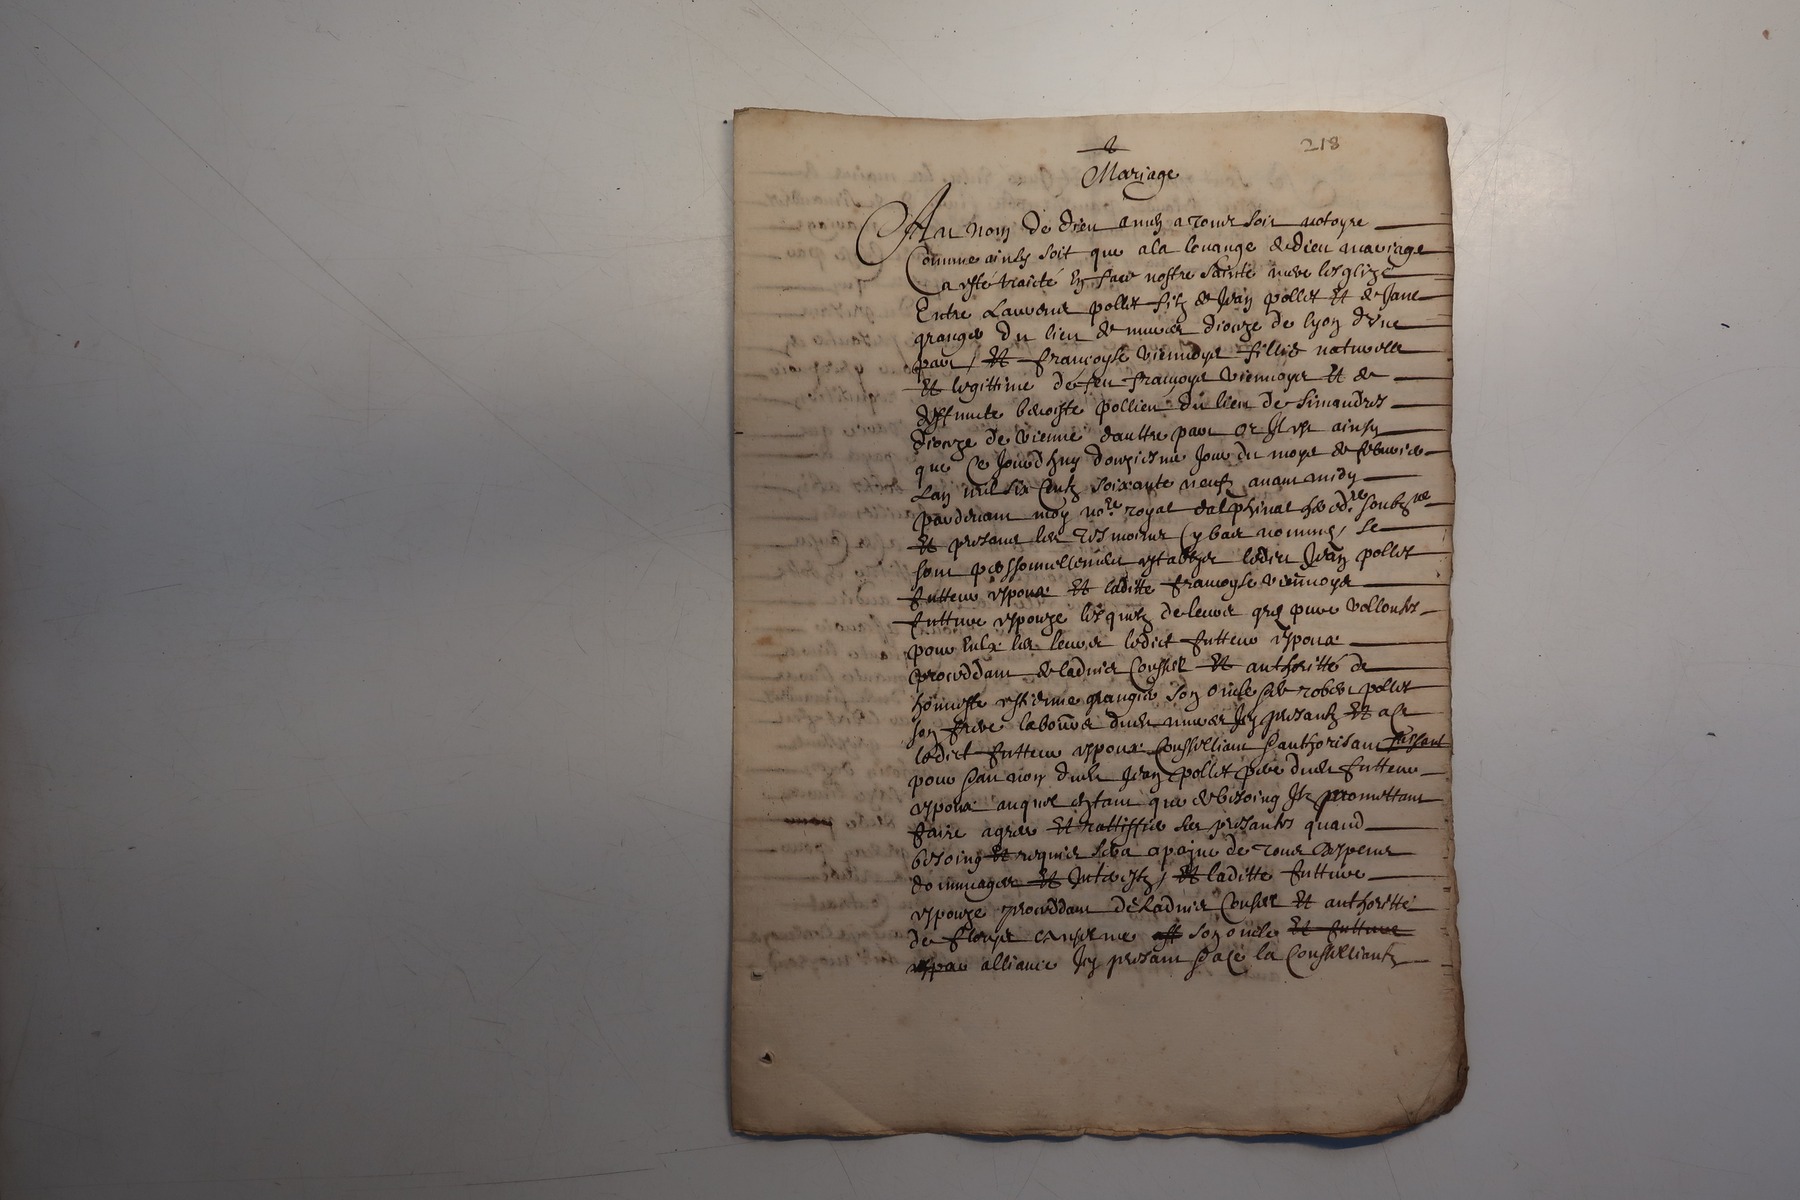 218
Mariage
Au nom de dieu amen a tous soit notoyre
Comme ainsy soit que a la louange de dieu mariage
a esté traicté En face nostre saincte mere lesglize
Entre Laurens pollet filz de Jean pollet Et de Jane
grangier du lieu de dioceze de lyon dune
part, Et francoyse viennoys fillie naturelle
Et legittime de feu francoys viennoys Et de
deffuncte benoiste pollien du lieu de simandres
dioceze de vienne daultre part Or Il est ainsy
que Ce Jourdhuy douziesme Jour du moys de febvrier
Lan mil six Centz soixante neufz avant midy
pardevant moy no.re royal dalphinal soubz.ne
Et presans les tesmoins Cy bas nommes, se
sont personnellement establys ledict Jean pollet
futteur espoux Et laditte francoyse viennoys
futture espouze lesquelz de leurs gré pure vollontes
pour Eulx les leurs ledict futteur espoux
proceddant de ladvis Conseil Et authoritté de
honneste estienne grangier son oncle & de robert pollet
son frere laboureur dudit Icy presantz Et a Ce
ledict futteur espoux Conseilliant & authorisant faisant
pour & au nom dudit Jean pollet pere dudit futteur
espoux auquel Entant que de besoing Ilz promettant
faire agreer Et rattiffier les presantes quand
besoing Et requis sera a peyne de tous despens
dommages Et Interestz, Et laditte futture
espouze proceddant de Ladvis Conseil Et authoritté
de son oncle Et futture
par alliance Icy presant & a Ce la Conseilliantz